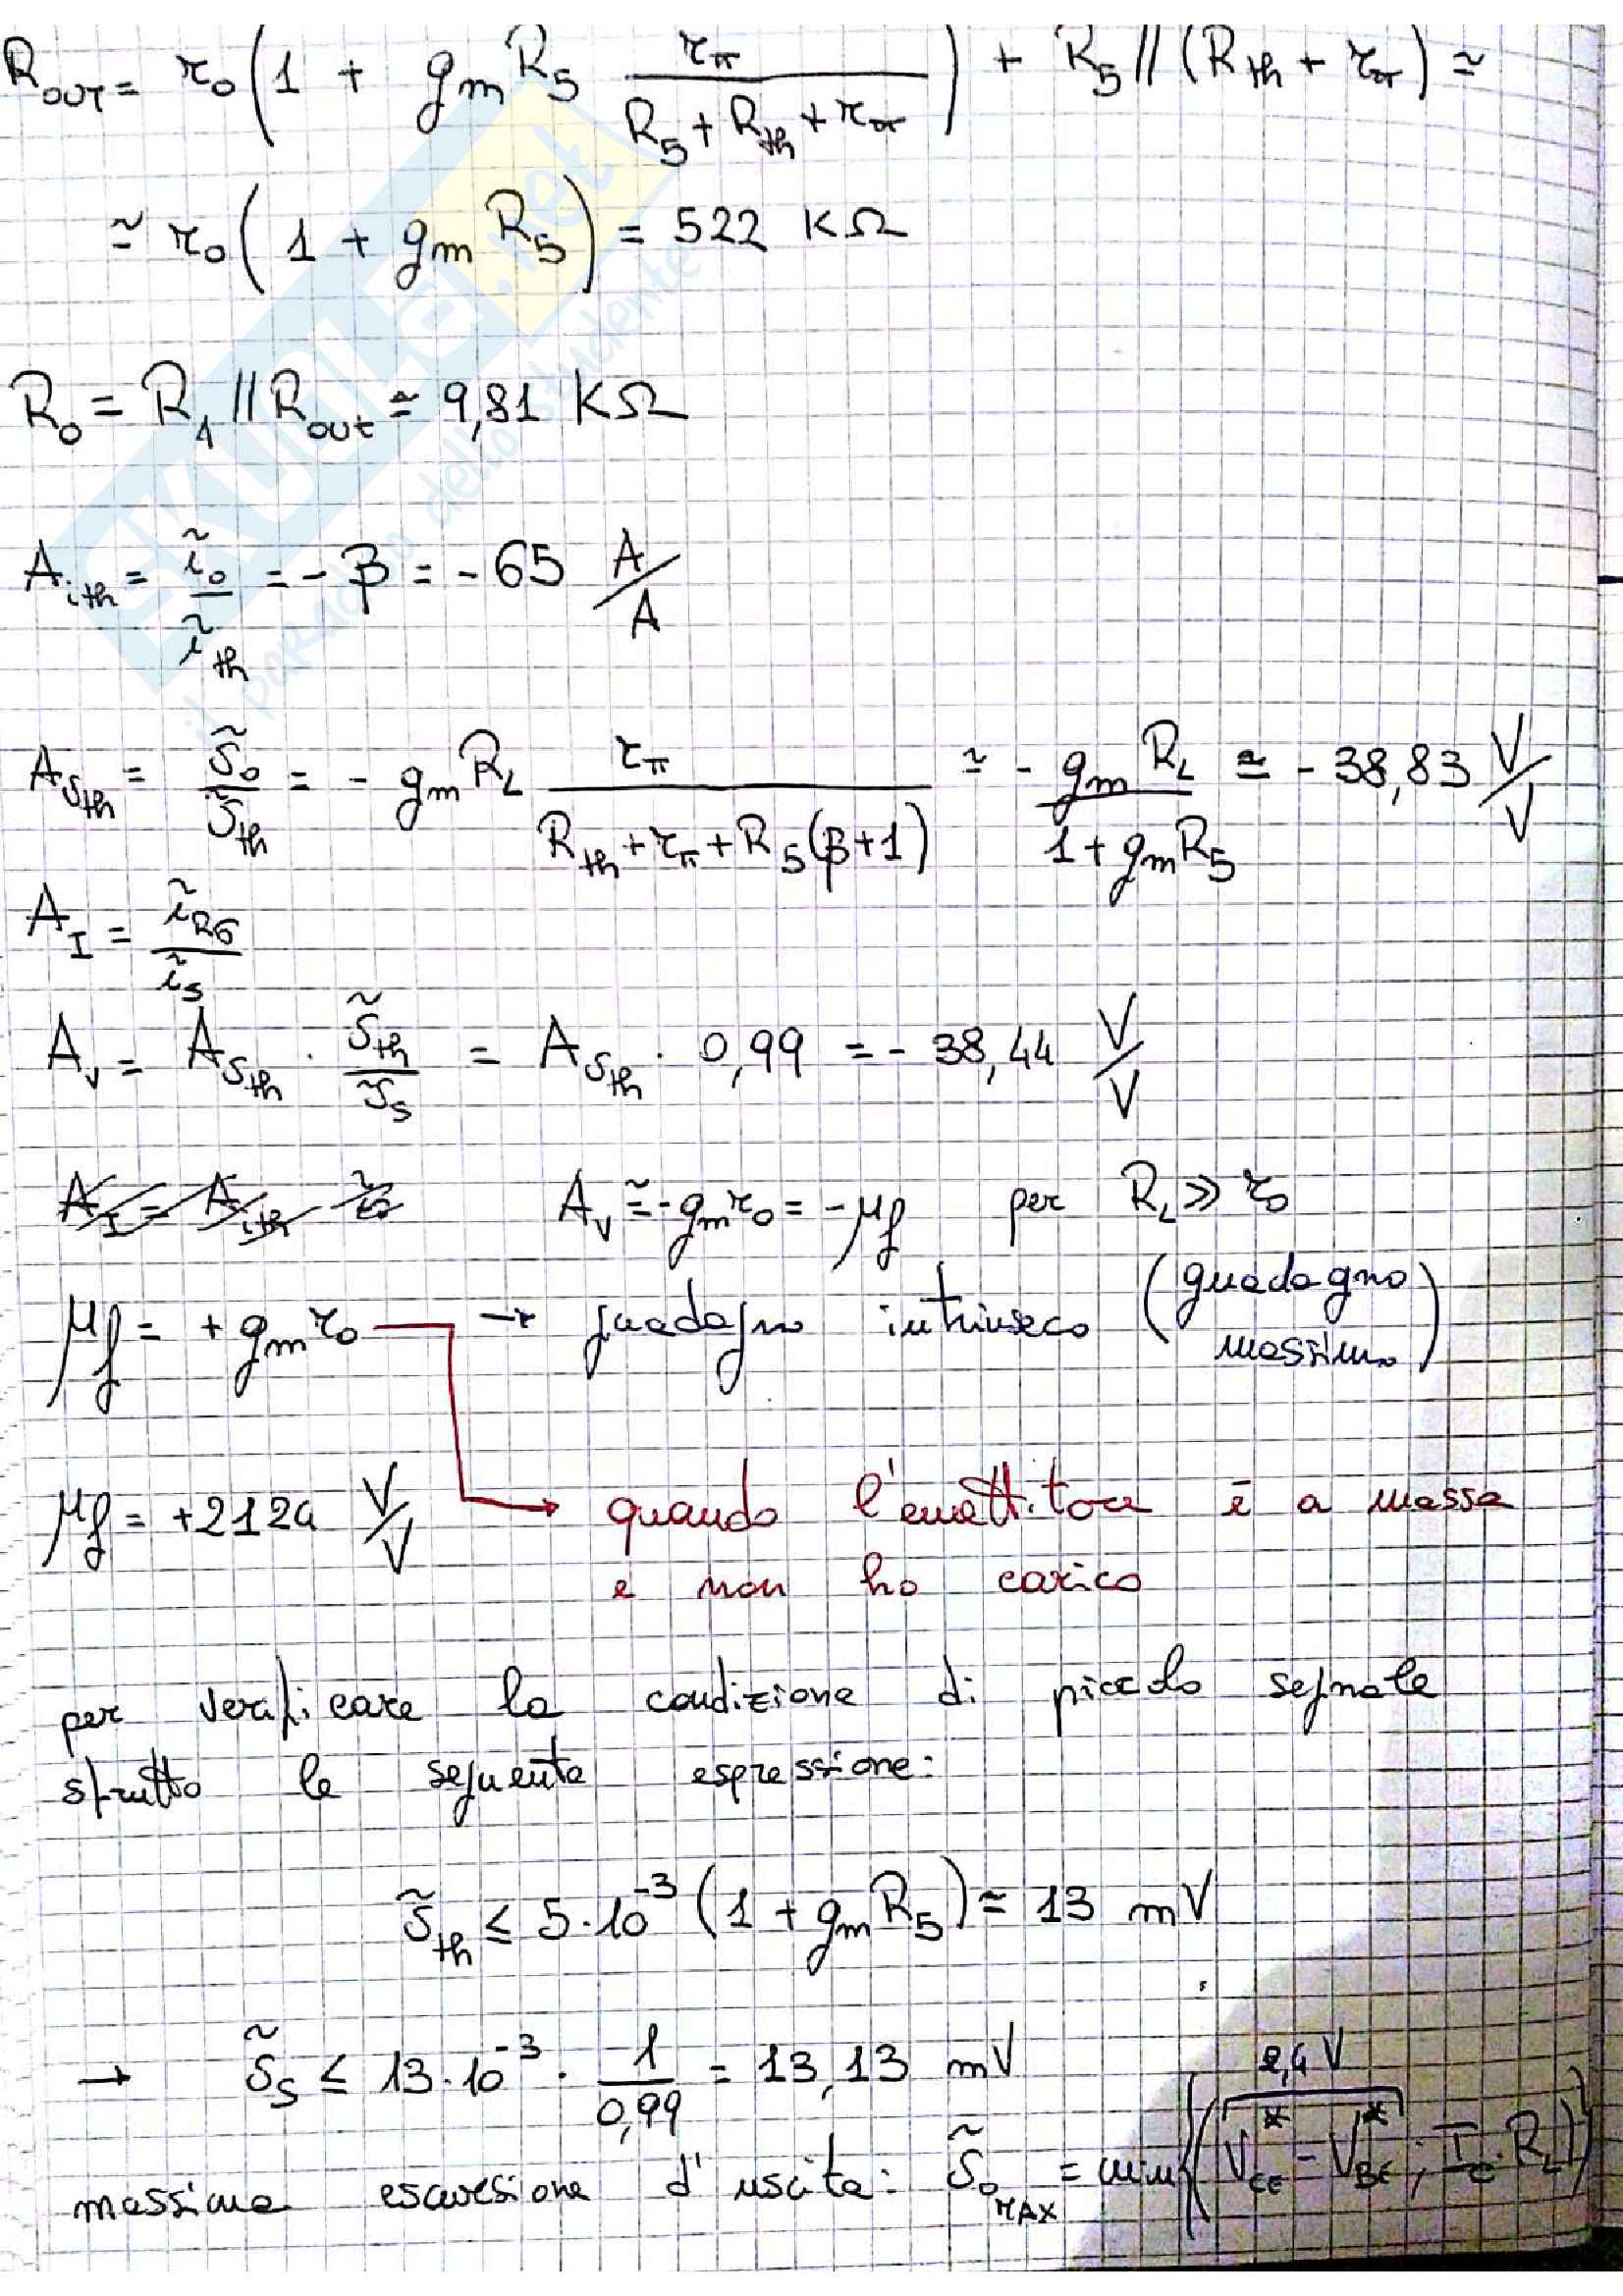 R_OUT = r_o (1 + g_m R_5 r_π / (R_5 + R_th + r_π)) + R_5 // (R_th + r_π) ≃
≃ r_o (1 + g_m R_5) = 522 KΩ
R_o = R_4 // R_out ≃ 9,81 KΩ
A_ith = ĩ_o / ĩ_th = - β = - 65 A/A
A_vth = ṽ_o / ṽ_th = - g_m R_L r_π / (R_th + r_π + R_5 (β+1)) ≃ - g_m R_L / (1 + g_m R_5) ≃ - 38,83 V/V
A_I = ĩ_R6 / ĩ_s
A_v = A_vth · ṽ_th / ṽ_s = A_vth · 0,99 = - 38,44 V/V
A_I = A_ith A_v ≃ - g_m r_o = - μ_f per R_L ≫ r_o
μ_f = + g_m r_o → guadagno intrinseco (guadagno
massimo)
μ_f = +2124 V/V quando l'emettitore è a massa
e non ho carico
per verificare la condizione di piccolo segnale
sfrutto la seguente espressione:
ṽ_th ≤ 5·10^-3 (1 + g_m R_5) ≃ 13 mV
→ ṽ_s ≤ 13·10^-3 · 1/0,99 = 13,13 mV
2,4 V
massima escursione d'uscita: ṽ_o MAX = min{(V_CE* - V_BE* ; I_C·R_L)}
skuola.net
il paradiso dello studente